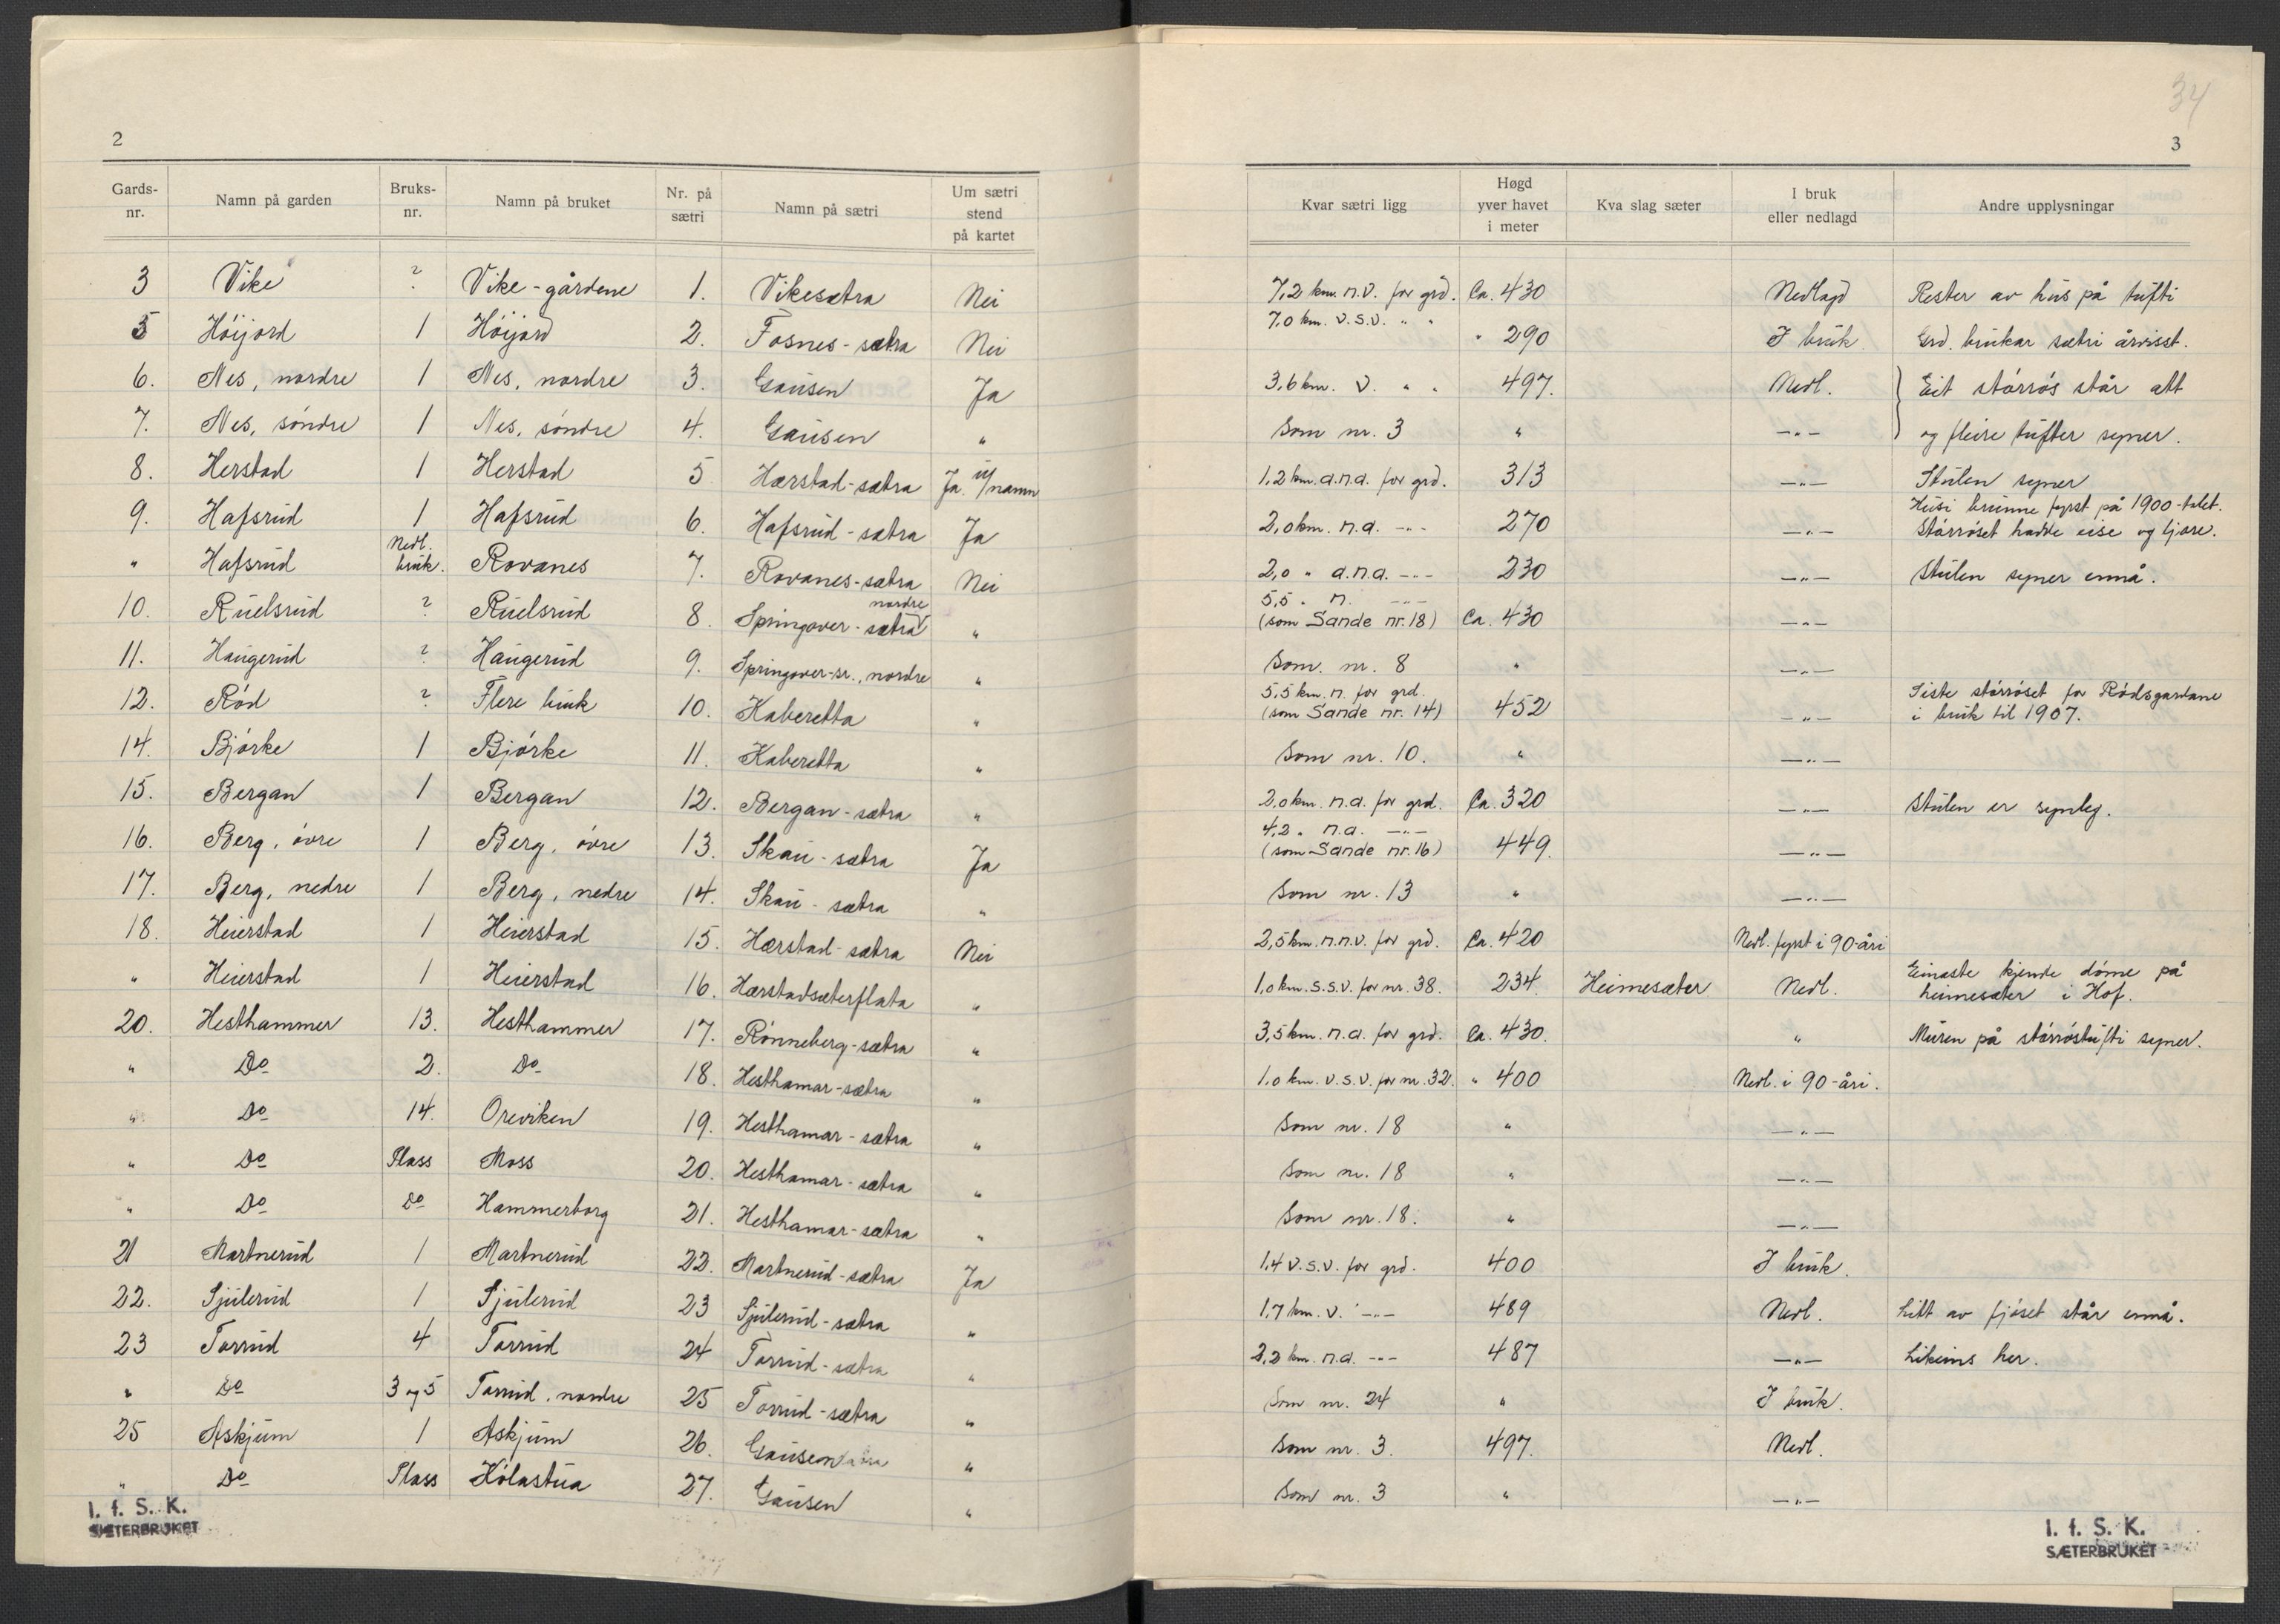 34
2
3
Gards-nr. Namn på garden Bruks-nr. Namn på bruket Nr. på sætri Namn på sætri Um sætri stend på kartet Kvar sætri ligg Høgd yver havet i meter Kva slag sæter I bruk eller nedlagd Andre upplysningar
3 Vike ? Vike-gårdene 1. Vikesætra Nei 7,2 km. n.v. for grd. Ca. 430 Nedlagd Rester av hus på tufti
5 Höijord 1 Höijord 2. Fosnes-sætra Nei 7,0 km. v.s.v. " " " 290 I bruk Grd. brukar sætri årvisst.
6. Nes, nordre 1 Nes, nordre 3. Gausen Ja 3,6 km. v. " " 497. Nedl. Eit störrös står att
7. Nes, söndre 1 Nes, söndre 4. Gausen " Som nr. 3 " —"— og fleire tufter syner.
8. Herstad 1 Herstad 5 Hærstad-sætra Ja u/namn 1,2 km. a.n.a. for grd. 313 —"— Stulen syner
9. Hafsrud 1 Hafsrud 6. Hafsrud-sætra Ja 2,0 km. n.a. —"— 270 —"— Husi brunne fyrst på 1900-talet. Störröset hadde eise og ljore.
" Hafsrud Nedl. bruk. Rovanes 7. Rovanes-sætra Nei 2,0 " a.n.a. —"— 230 —"— Stulen syner ennå.
10. Ruelsrud ? Ruelsrud 8. Springover-sætra nordre " 5,5 " n. —"— (som Sande nr. 18) Ca. 430 —"—
11. Haugerud ? Haugerud 9. Springover-sr., nordre " Som. nr. 8 " —"—
12. Röd ? Flere bruk 10. Kaberetta " 5,5 km. n. for grd. (som Sande nr. 14) 452 —"— Siste störröset for Rödsgardane i bruk til 1907.
14. Björke 1 Björke 11. Kaberetta " Som nr. 10. " —"—
15. Bergan 1 Bergan 12. Bergan-sætra " 2,0 km. n.a. for grd. Ca. 320 —"— Stulen er synleg.
16. Berg, övre 1 Berg, övre 13. Skau-sætra Ja 4,2 " n.a. —"— (som Sande nr. 16) 449. —"—
17. Berg, nedre 1 Berg, nedre 14. Skau-sætra " Som nr. 13 " —"—
18. Heierstad 1 Heierstad 15. Hærstad-sætra Nei 2,5 km. n.n.v. for grd. Ca. 420 Nedl. fyrst i 90-åri
" Heierstad 1 Heierstad 16. Hærstadsæterflata " 1,0 km. s.s.v. for nr. 38. 234. Heimesæter Nedl. Einaste kjende döme på heimesæter i Hof.
20. Hesthammer 13. Hesthammer 17. Rönneberg-sætra " 3,5 km. n.a. for grd. Ca. 430. " Muren på störröstufti syner.
" Do 2. Do 18. Hesthamar-sætra " 1,0 km. v.s.v. for nr. 32. " 400 Nedl. i 90-åri.
" Do 14. Oreviken 19. Hesthamar-sætra " Som nr. 18 " —"—
" Do Plass Moss 20. Hesthamar-sætra " Som nr. 18 " —"—
" Do Do Hammerborg 21. Hesthamar-sætra " Som nr. 18. " —"—
21 Martnerud 1 Martnerud 22. Martnerud-sætra Ja 1,4 v.s.v. for grd. 400 I bruk.
22. Sjulerud 1 Sjulerud 23 Sjulerud-sætra " 1,7 km. v. —"— 489 Nedl. Litt av fjöset står ennå.
23 Torrud 4 Torrud 24 Torrud-sætra " 2,2 km. n.a. —"— 487 —"— Likeins her.
" Do 3 og 5 Torrud, nordre 25 Torrud-sætra " Som nr. 24 " I bruk.
25 Askjum 1 Askjum 26. Gausensætra " Som nr. 3. 497. Nedl.
" Do Plass Kölastua 27. Gausen " Som nr. 3 " —"—
I. f. S. K.
SÆTERBRUKET
I. f. S. K.
SÆTERBRUKET